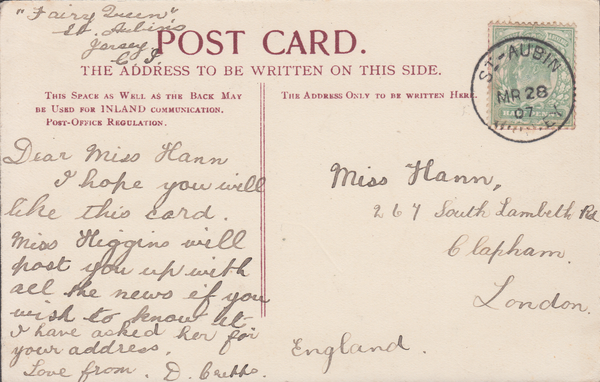 "Fairy Queen"
St. Aubin's
Jersey
C I.
POST CARD.
THE ADDRESS TO BE WRITTEN ON THIS SIDE.
THIS SPACE AS WELL AS THE BACK MAY
BE USED FOR INLAND COMMUNICATION.
POST-OFFICE REGULATION.
THE ADDRESS ONLY TO BE WRITTEN HERE.
ST-AUBIN
MR 28
07
HALFPENNY
Dear Miss Hann
I hope you will
like this card.
Miss Higgins will
post you up with
all the news if you
wish to know it
I have asked her for
your address.
Love from. D.
Miss Hann,
267 South Lambeth Rd
Clapham.
London.
England.